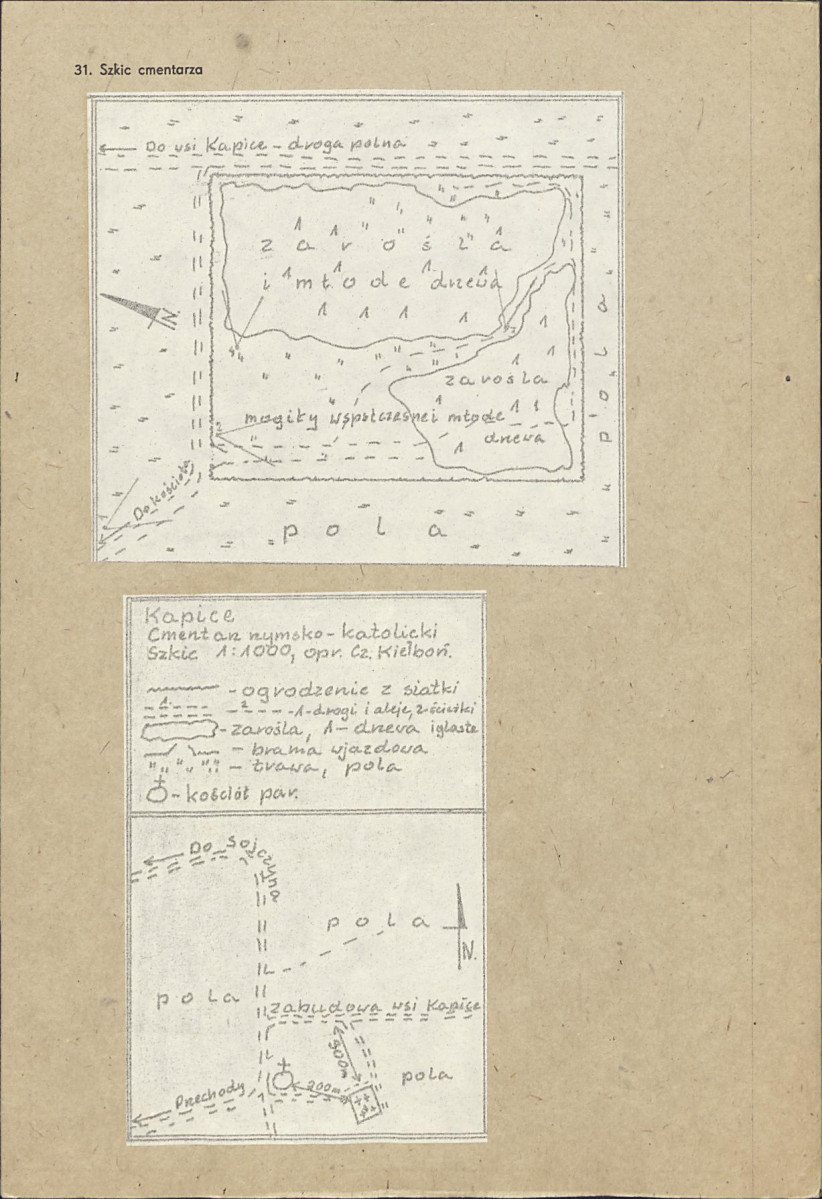 31. Szkic cmentarza
Do wsi Kapice – droga polna
zarośla
i młode drzewa
N.
pola
zarośla
mogiły współczesnei młode
drzewa
Do kościoła
pola
Kapice
Cmentarz rzymsko-katolicki
Szkic 1:1000, opr. Cz. Kiełboń.
- ogrodzenie z siatki
1. 2 - 1-drogi i aleje, 2-ścieżki
- zarośla, - drzewa iglaste
- brama wjazdowa
- trawa, pola
- kościół par.
Do Sojczyna
pola
N.
pola
zabudowa wsi Kapice
pola
200m
Przechody